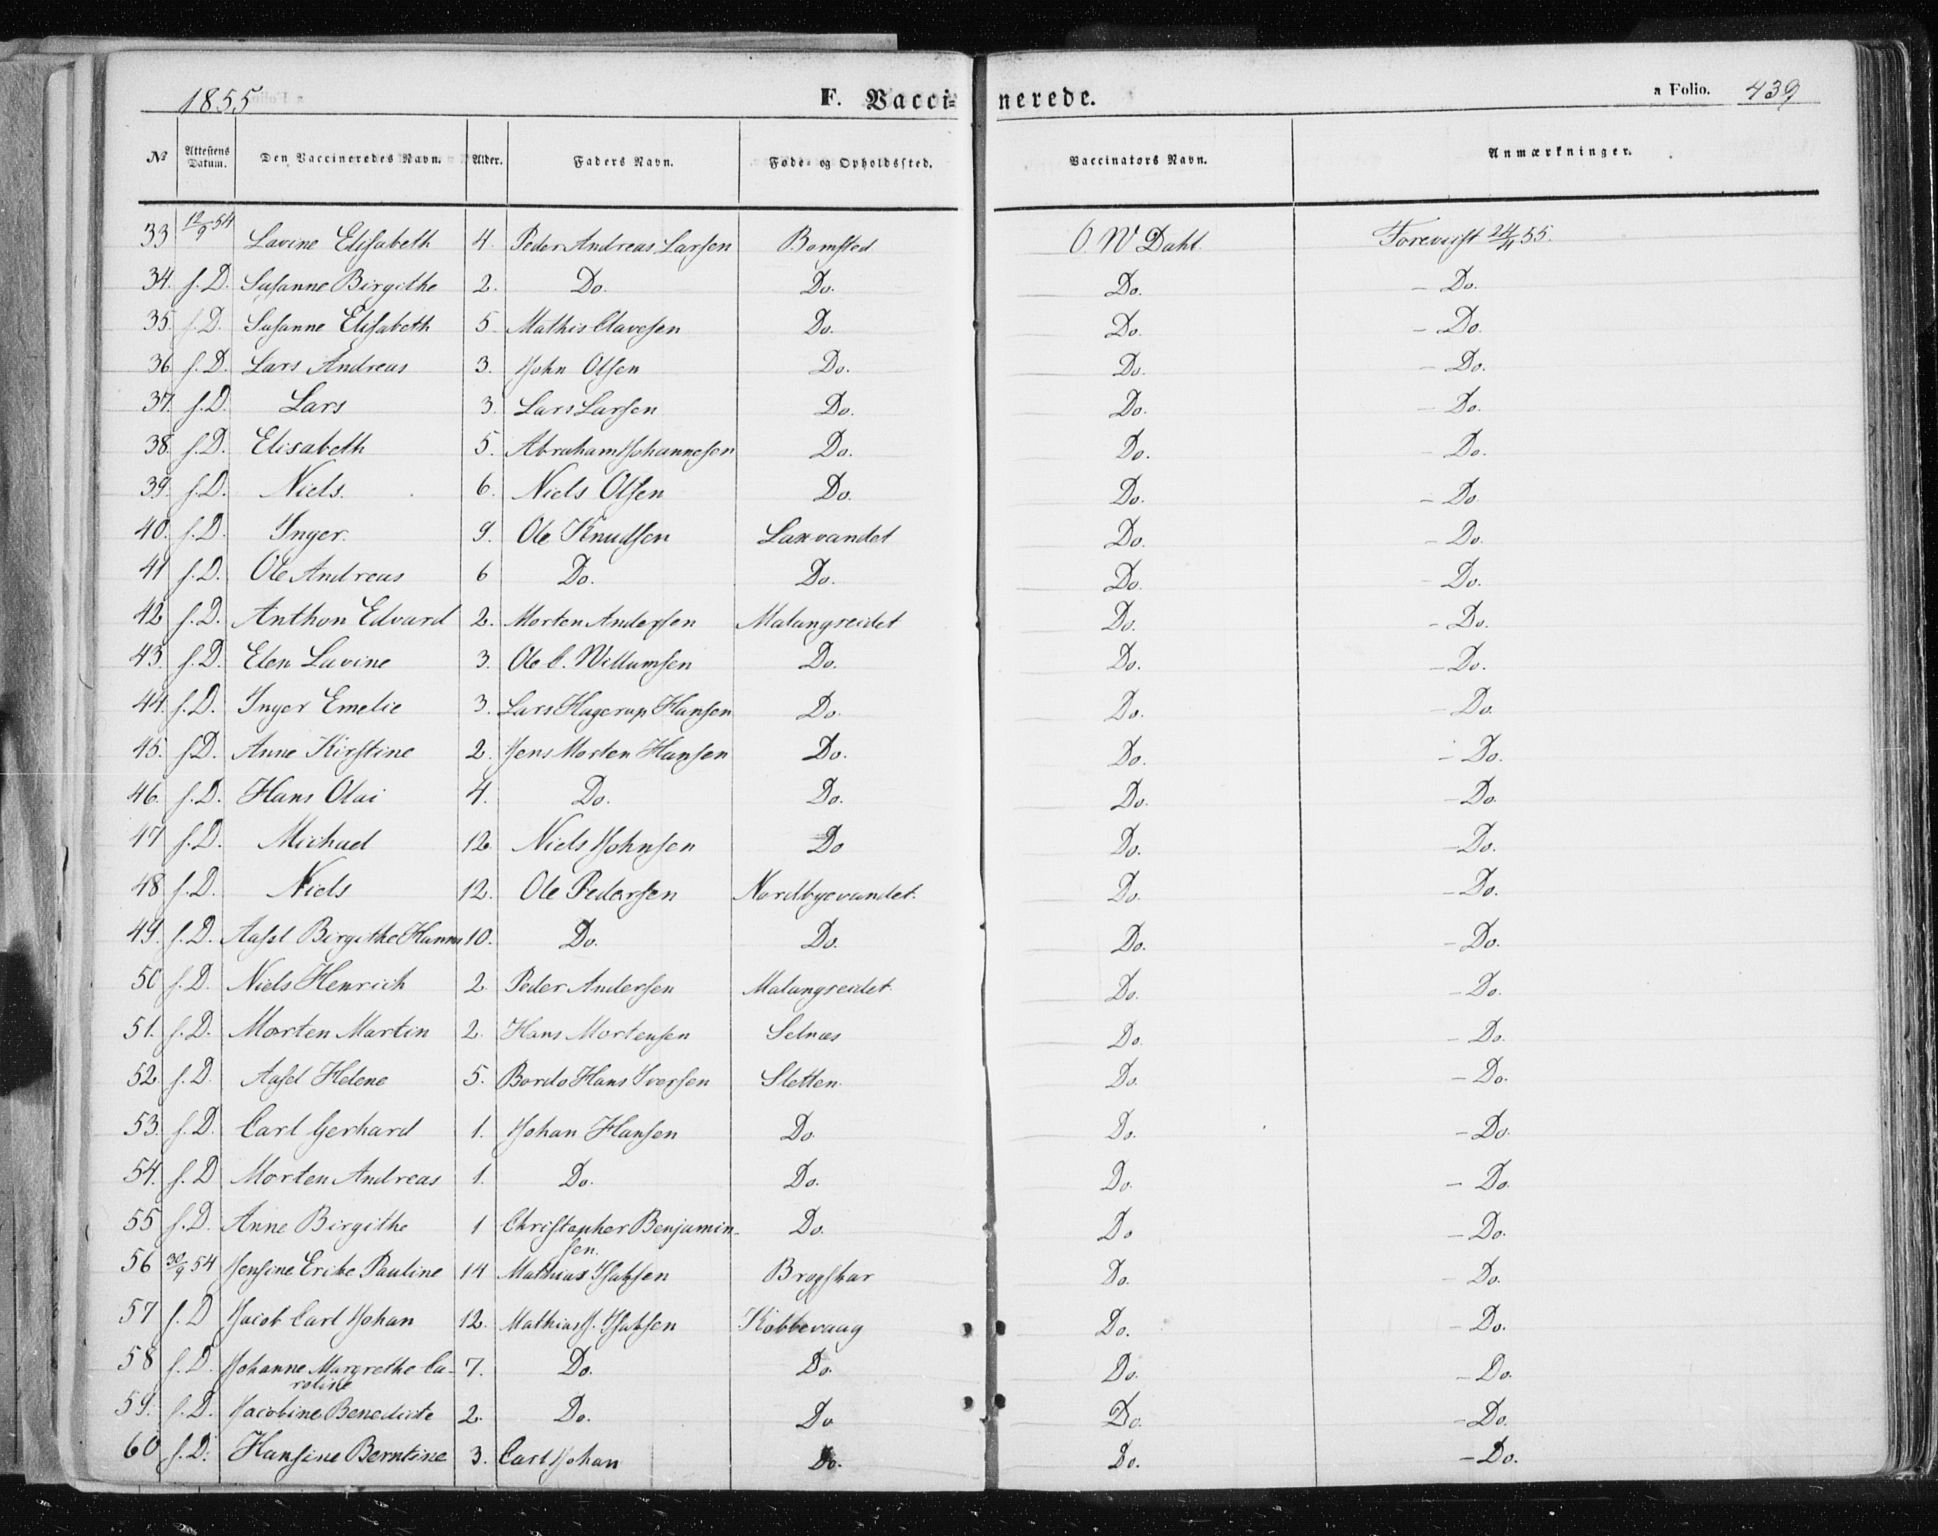 1855 F. Vaccinerede. a Folio. 439
№ Attestens Datum. Den Vaccineredes Navn. Alder. Faders Navn. Føde- og Opholdssted. Vaccinators Navn. Anmærkninger.
33 12/9 54 Lavine Elisabeth 4. Peder Andreas Larsen Bomsted O. W Dahl Foreviist 24/4 55.
34. s. D. Susanne Birgithe 2. Do. Do. Do. - Do.
35. s. D. Susanne Elisabeth 5. Mathis Clavesen Do. Do. - Do.
36 s. D. Lars Andreas 3. John Olsen Do. Do. - Do.
37. s. D. Lars 3. Lars Larsen Do. Do. - Do.
38. s. D. Elisabeth 5. Abraham Johannesen Do. Do. - Do.
39. s. D. Niels. 6. Niels Olsen Do. Do. - Do
40. s. D. Inger. 9. Ole Knudsen Laxvandet Do. - Do.
41 s. D. Ole Andreas 6 Do. Do. Do. - Do.
42 s. D. Anthon Edvard 2. Morten Andersen Malangseidet Do. - Do.
43. s. D. Elen Lavine 3. Ole C. Willumsen Do. Do. - Do.
44. s. D. Inger Emelie 3. Lars Hagerup Hansen Do. Do. - Do.
45. s. D. Anne Kirstine 2. Jens Morten Hansen Do. Do. - Do.
46. s. D. Hans Olai 4. Do. Do. Do. - Do.
47 s. D. Michael 12. Niels Johnsen Do Do. - Do.
48. s. D. Niels 12. Ole Pedersen Nordbyevandet. Do. - Do.
49. s. D. Aasel Birgithe Hanna 10. Do. Do. Do. - Do.
50 s. D. Niels Henrich 2. Peder Andersen Malangseidet Do. - Do.
51. s. D. Morten Martin 2. Hans Mortensen Selnæs Do. - Do.
52. s. D. Aasel Helene 5. Bordo Hans Iversen Sletten. Do. - Do.
53. s. D. Carl Gerhard 1. Johan Hansen Do. Do. - Do.
54. s. D Morten Andreas 1. Do. Do. Do. - Do.
55 s. D. Anne Birgithe 1 Christopher Benjamin- Do. Do - Do.
sen.
56 30/9 54 Jensine Erike Pauline 14 Mathias Isaksen Do. - Do.
57 s. D Jacob Carl Johan 12. Mathias J. Isaksen Kobbevaag Do. - Do.
58 s. D. Johanne Margrethe Ca- 7. Do. Do. Do. - Do.
roline
59. s. D. Jacobine Benedicte 2. Do. Do Do. - Do.
60 s. D. Hansine Berntine 3. Carl Johan Do. Do. - Do.